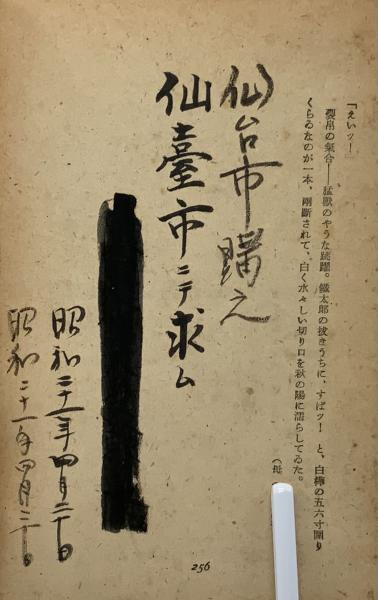 「えいッ！」
裂帛の気合――猛獣のやうな跳躍。鐵太郎の抜きうちに、すぱッ！　と、白樺の五六寸圍り
くらゐなのが一本、剛斷されて、白く水々しい切り口を秋の陽に濡らしてゐた。
仙台市購之
仙臺市ニテ求ム
昭和二十一年四月二十日
昭和二十一年四月二十日
256